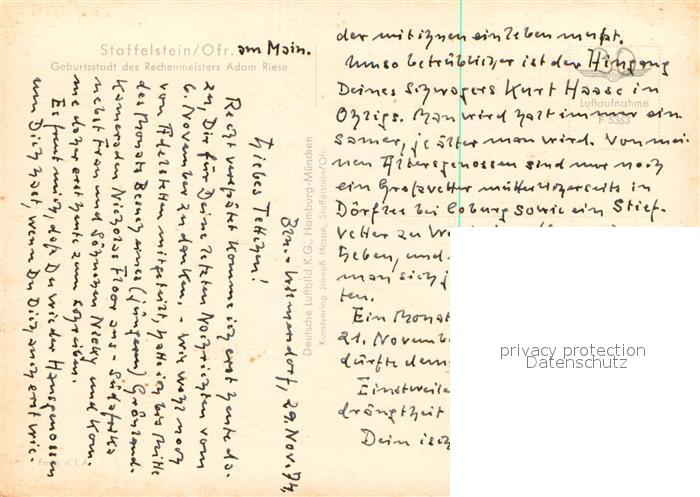 Staffelstein/Ofr. am Main.
Geburtsstadt des Rechenmeisters Adam Riese
Bln.-Wilmersdorf, 29. Nov. 74
Liebes Tettchen!
Recht verspätet komme ich erst heute da-
zu, Dir für Deine letzten Nachrichten vom
6. November zu danken. - Wie wohl noch
von Adelstetten mitgeteilt, hatte ich bis Mitte
des Monats Besuch eines (jüngeren) Grönland-
Kameraden Nicholas Floor aus - Südafrika
nebst Frau und Söhnchen Nicky und kom-
me daher erst heute zum Schreiben.
Es freut mich, daß Du wieder Hausgenossen
um Dich hast, wenn Du Dich auch erst wie-
der mit ihnen einleben mußt.
Umso betrüblicher ist der Hingang
Deines Schwagers Kurt Haase in
Ohligs. Man wird halt immer ein-
samer, je älter man wird. Von mei-
nen Altersgenossen sind nur noch
ein Großvetter mütterlicherseits in
Dörfles bei Coburg sowie ein Stief-
vetter zu
leben, und
man sich j
ten.
Ein Monat
21. Novembe
dürfte dem
Einstweile
drängtheit
Dein
Deutsche Luftbild K.G., Hamburg-München
Kunstverlag Joseph Haspe, Staffelstein/Ofr.
Luftaufnahme
F 5363
Freig. d. L.A.
privacy protection
Datenschutz